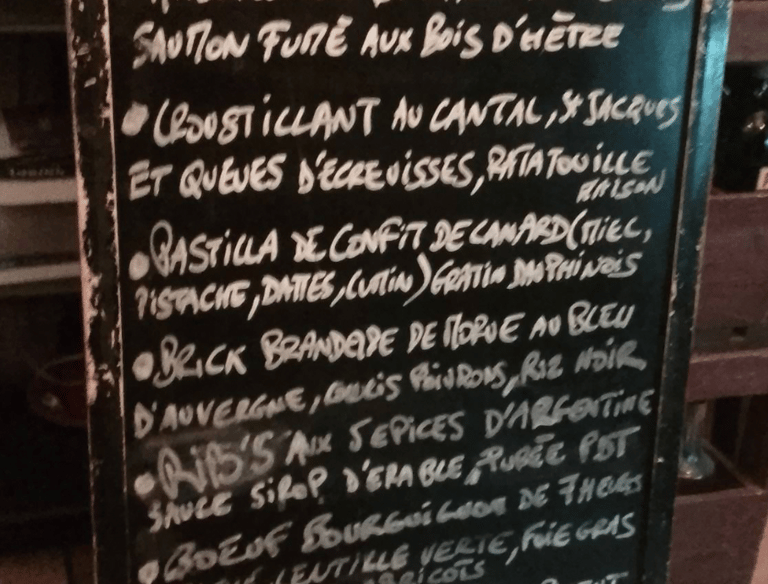 SAUMON FUMÉ AUX BOIS D'HÊTRE
CROUSTILLANT AU CANTAL, St JACQUES
ET QUEUES D'ECREVISSES, RATATOUILLE
MAISON
PASTILLA DE CONFIT DE CANARD (MIEL,
PISTACHE, DATTES, CUMIN) GRATIN DAUPHINOIS
BRICK BRANDADE DE MORUE AU BLEU
D'AUVERGNE, COULIS POIVRONS, RIZ NOIR
RIB'S AUX 5 EPICES D'ARGENTINE
SAUCE SIROP D'ERABLE, PURÉE PDT
BOEUF BOURGUIGNON DE 7 HEURES
LENTILLE VERTE, FOIE GRAS
ABRICOTS